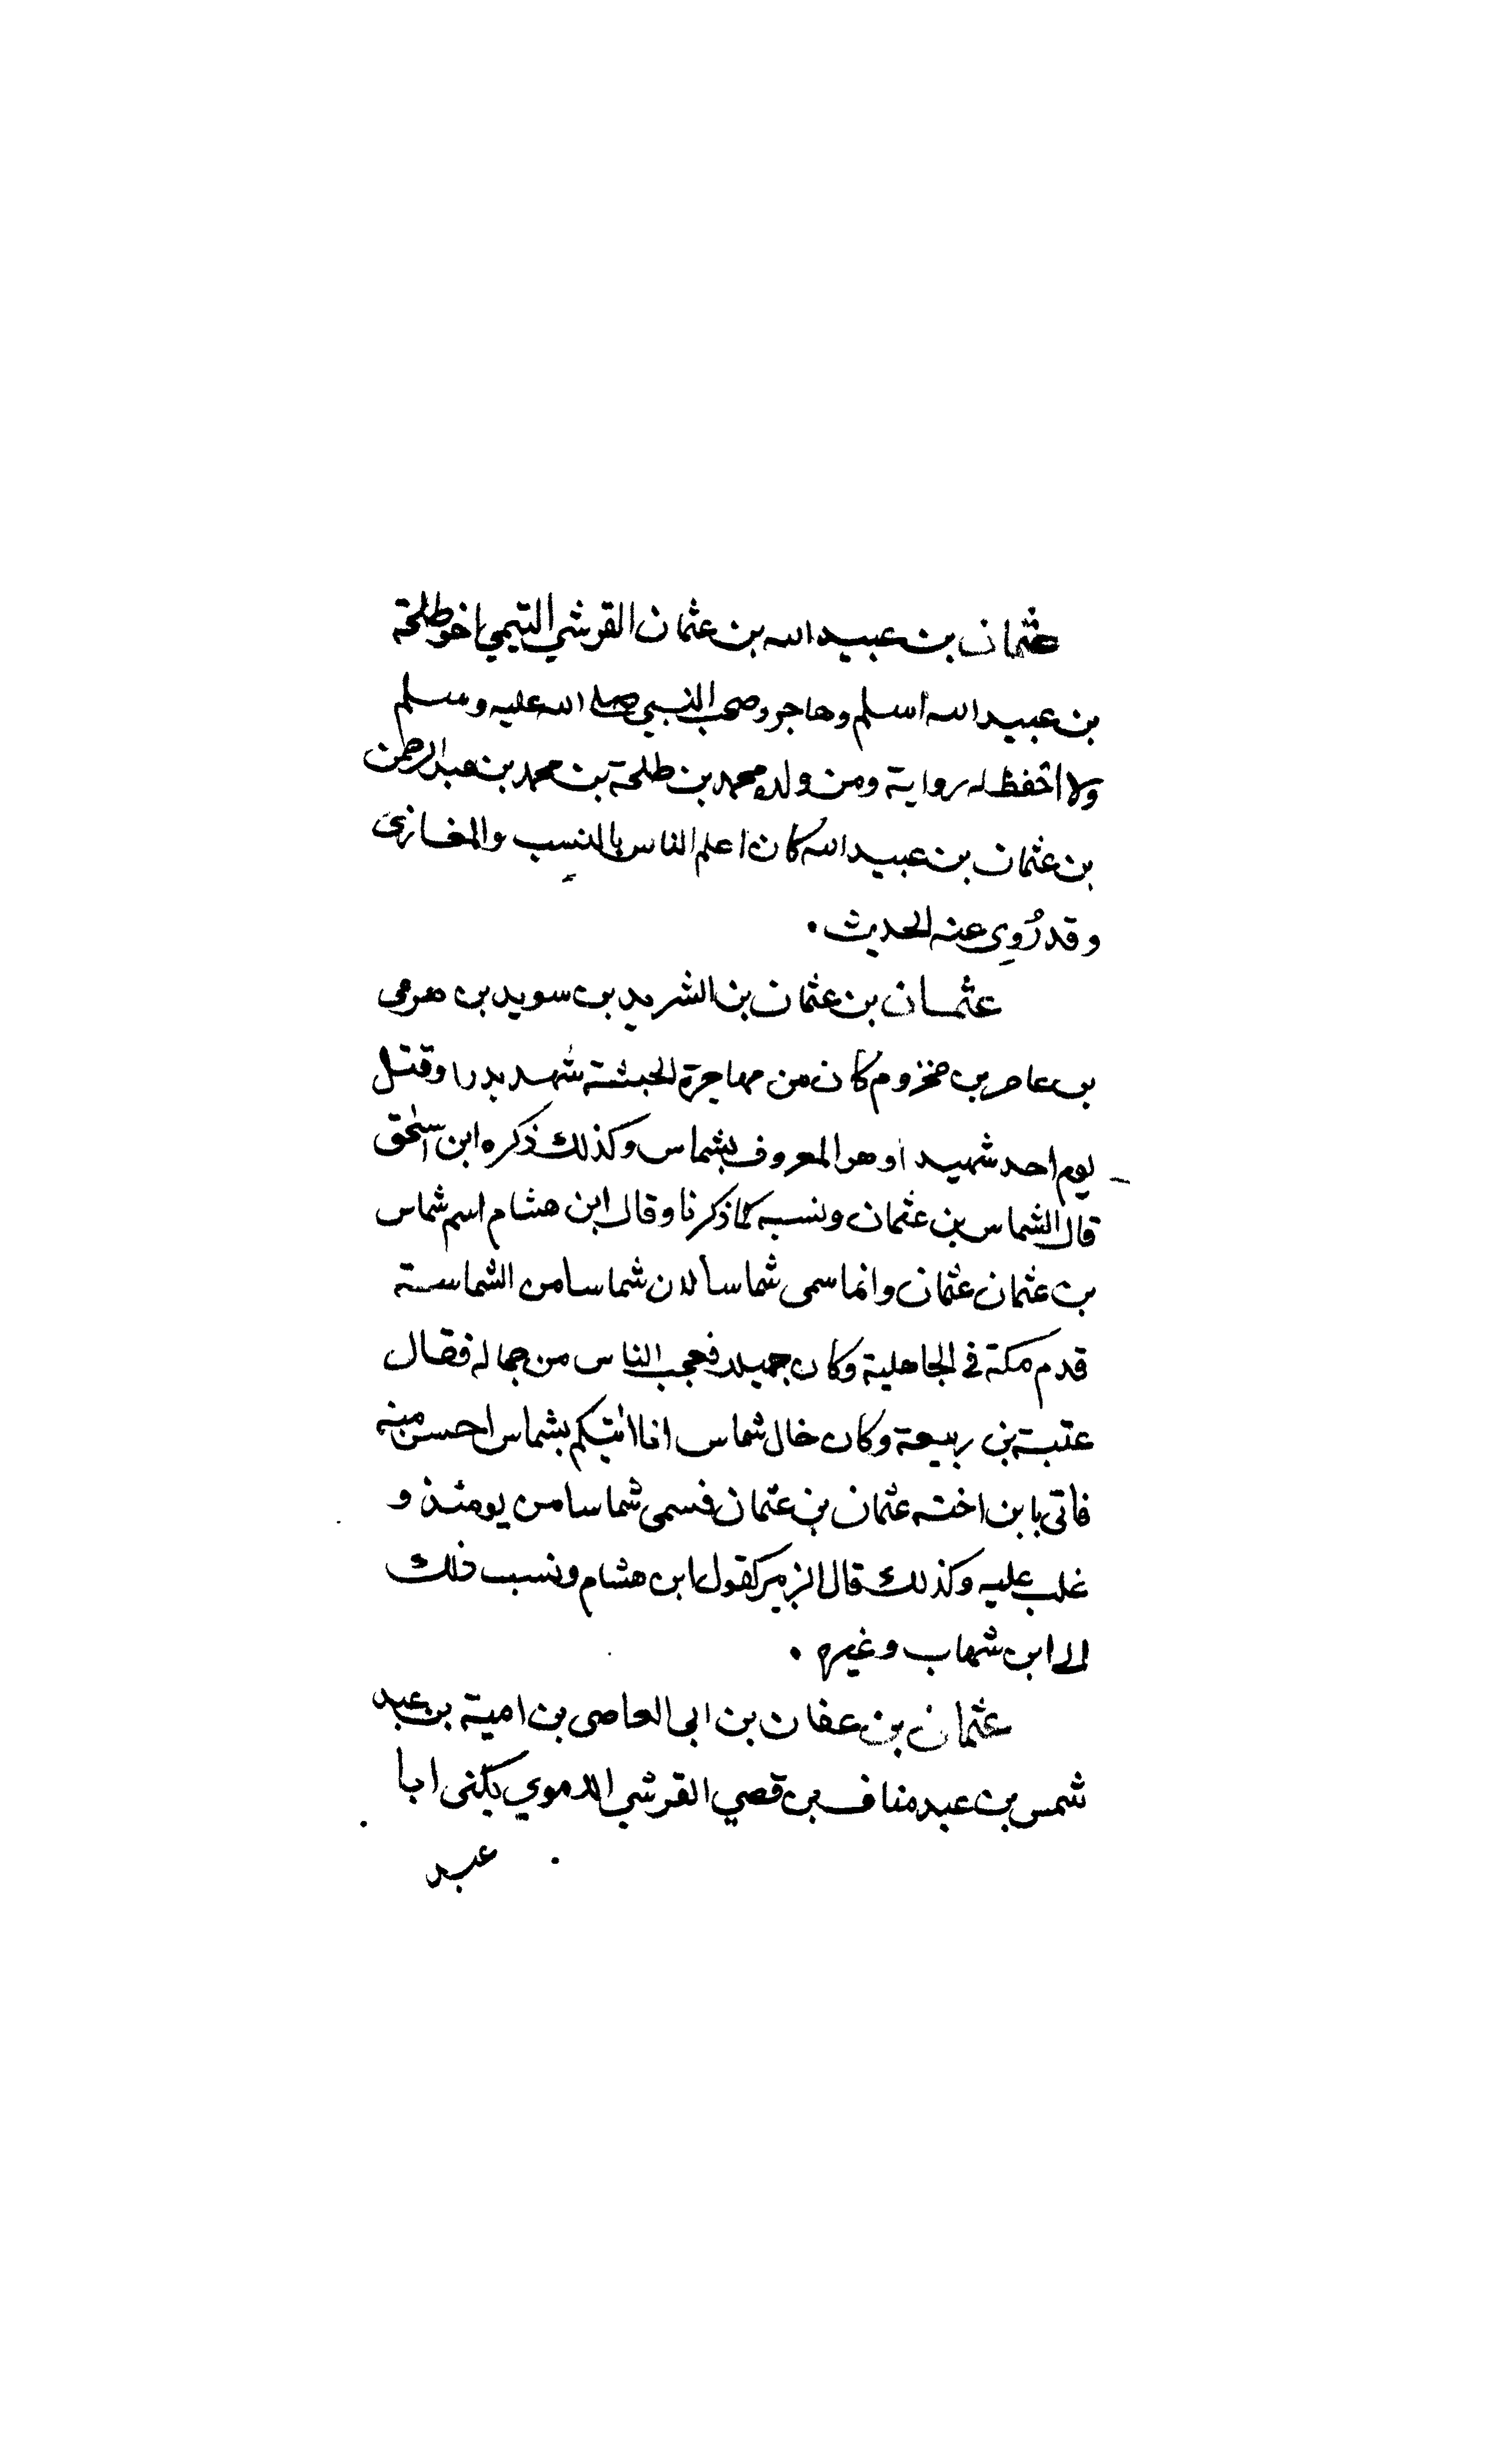 عثمان بن عبيد الله بن عثمان القرشي التيمي اخو طلحة
بن عبيد الله أسلم وهاجر وصحب النبي صلى الله عليه وسلم
ولا احفظ له رواية ومن ولده محمد بن طلحة بن محمد بن عبد الرحمن
بن عثمان بن عبيد الله كان اعلم الناس بالنسب والمغازى
وقد رُوِى عنه الحديث .
عثمان بن عثمان بن الشريد بن سويد بن هرمى
بن عامر بن مخزوم كان من مهاجرة الحبشة شهد بدرا وقتل
يوم احد شهيد اوهو المعروف بشماس وكذلك ذكره ابن اسحق
قال الشماس بن عثمان ونسبه كما ذكرنا وقال ابن هشام اسم شماس
بن عثمان عثمان وانما سمى شماسا لان شماسا من الشماسة
قدم مكة في الجاهلية وكان جميلا فعجب الناس من جماله فقال
عتبة بن ربيعة وكان خال شماس انا اتيكم بشماس احسن منه
فاتى بابن اخته عثمان بن عثمان فسمى شماسا من يومئذ و
غلب عليه وكذلك قال الزبير كقول ابن هشام ونسب ذلك
الى ابن شهاب وغيره .
عثمان بن عفان بن ابى العاصى بن امية بن عبد
شمس بن عبد مناف بن قصي القرشي الاموي يكنى ابا
عبد